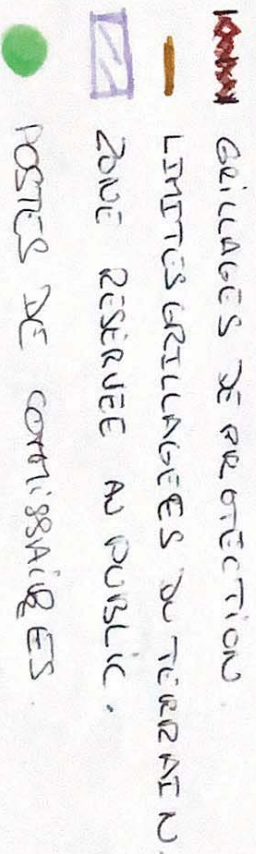 GRILLAGES DE PROTECTION
LIMITES GRILLAGEES DU TERRAIN.
ZONE RESERVEE AU PUBLIC.
POSTES DE COMMISSAIRES.